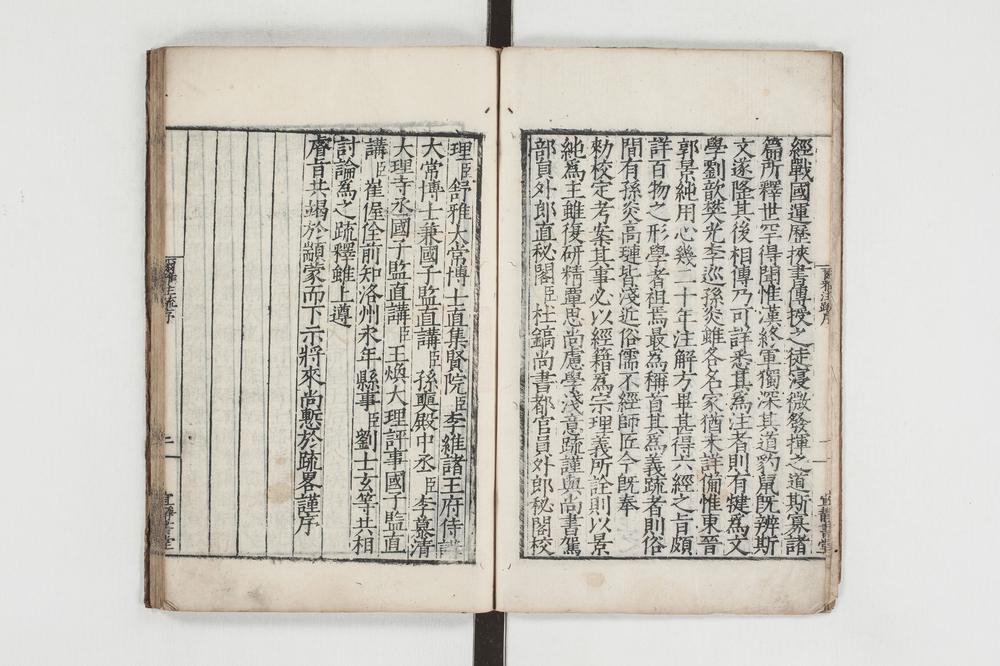 經戰國運歷挾書傳授之徒寖微發揮之道斯寡諸
篇所釋世罕得聞惟漢終軍獨深其道豹鼠旣辨斯
文遂隆其後相傳乃可詳悉其為注者則有犍為文
學劉歆樊光李巡孫炎雖各名家猶未詳備惟東晉
郭景純用心幾二十年注解方畢甚得六經之旨頗
詳百物之形學者祖焉最為稱首其為義疏者則俗
間有孫炎高璉皆淺近俗儒不經師匠今旣奉
勑校定考案其事必以經籍為宗理義所詮則以景
純為主雖復研精覃思尚慮學淺意疏謹與尚書駕
部員外郎直秘閣臣杜鎬尚書都官員外郎秘閣校
理臣舒雅大常博士直集賢院臣李維諸王府侍講
大常博士兼國子監直講臣孫奭殿中丞臣李慕清
大理寺丞國子監直講臣王煥大理評事國子監直
講臣崔偓佺前知洺州永年縣事臣劉士玄等共相
討論為之疏釋雖上遵
睿旨共竭於顓蒙而下示將來尚慙於疏畧謹序
爾雅注疏序
二